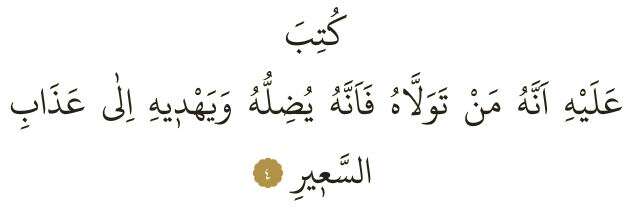 كُتِبَ
عَلَيْهِ اَنَّهُ مَنْ تَوَلَّاهُ فَاَنَّهُ يُضِلُّهُ وَيَهْد۪يهِ اِلٰى عَذَابِ
السَّع۪يرِ ٤